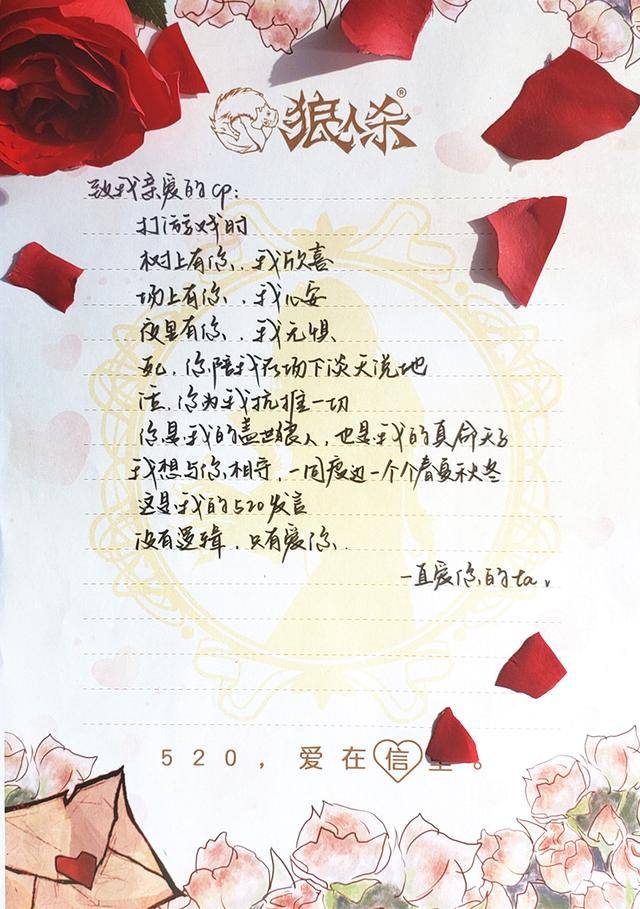 狼人杀®
致我亲爱的cp：
打游戏时
树上有你，我欣喜
场上有你，我心安
夜里有你，我无惧
死，你陪我在场下谈天说地
活，你为我抗推一切
你是我的盖世狼人，也是我的真命天子
我想与你相守，一同度过一个个春夏秋冬
这是我的520发言
没有逻辑，只有爱你．
一直爱你的ta．
520，爱在信里。